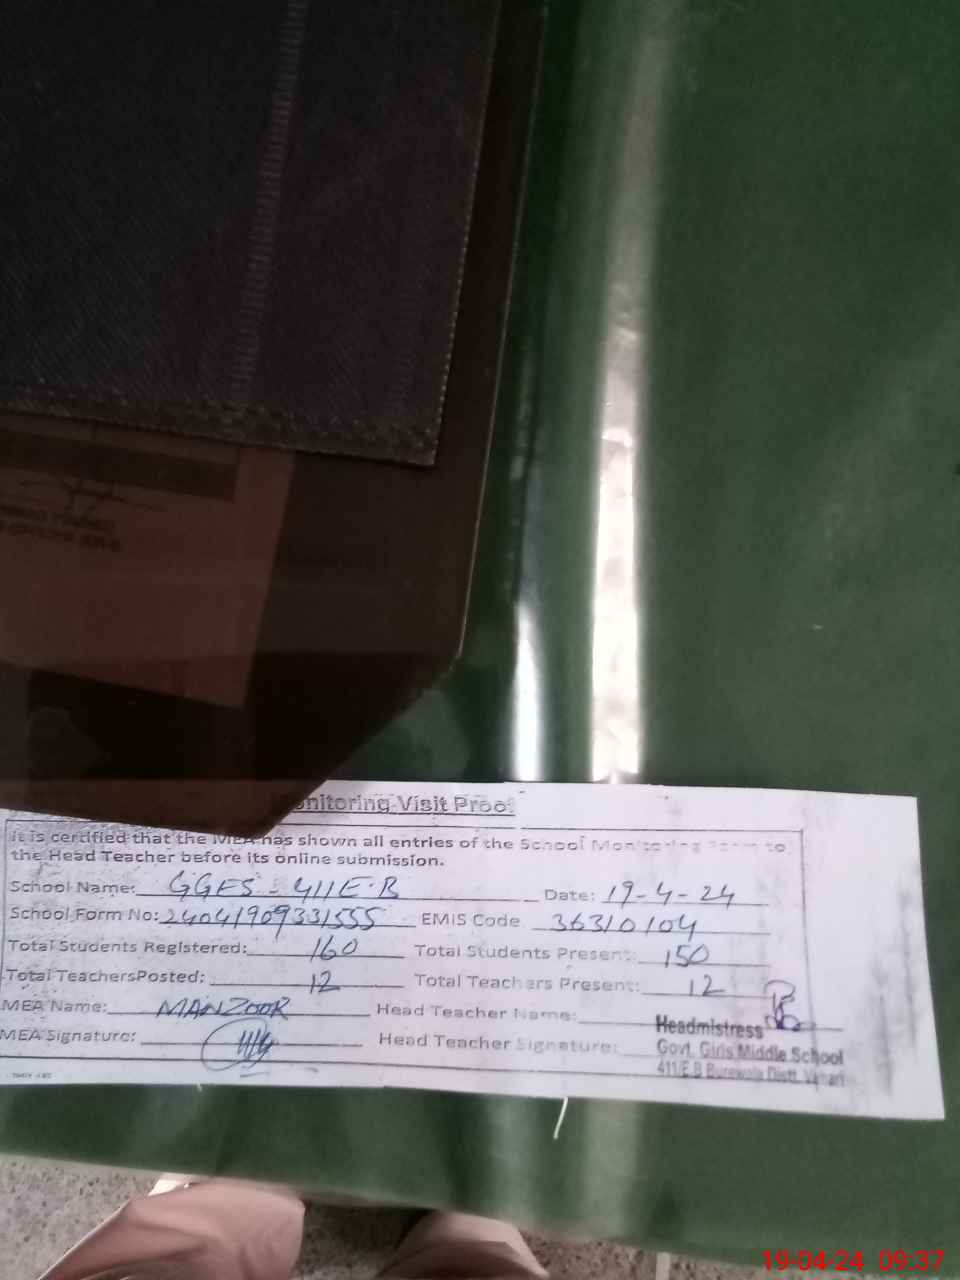 Monitoring Visit Proof
It is certified that the MEA has shown all entries of the School Monitoring Form to
the Head Teacher before its online submission.
School Name: GGES - 411 E.B Date: 19-4-24
School Form No: 24041909331555 EMIS Code 36310104
Total Students Registered: 160 Total Students Present: 150
Total TeachersPosted: 12 Total Teachers Present: 12
MEA Name: MANZOOR Head Teacher Name:
MEA Signature: Head Teacher Signature:
Headmistress
Govt. Girls Middle School
411/E.B Burewala Distt. Vehari
19-04-24 09:37